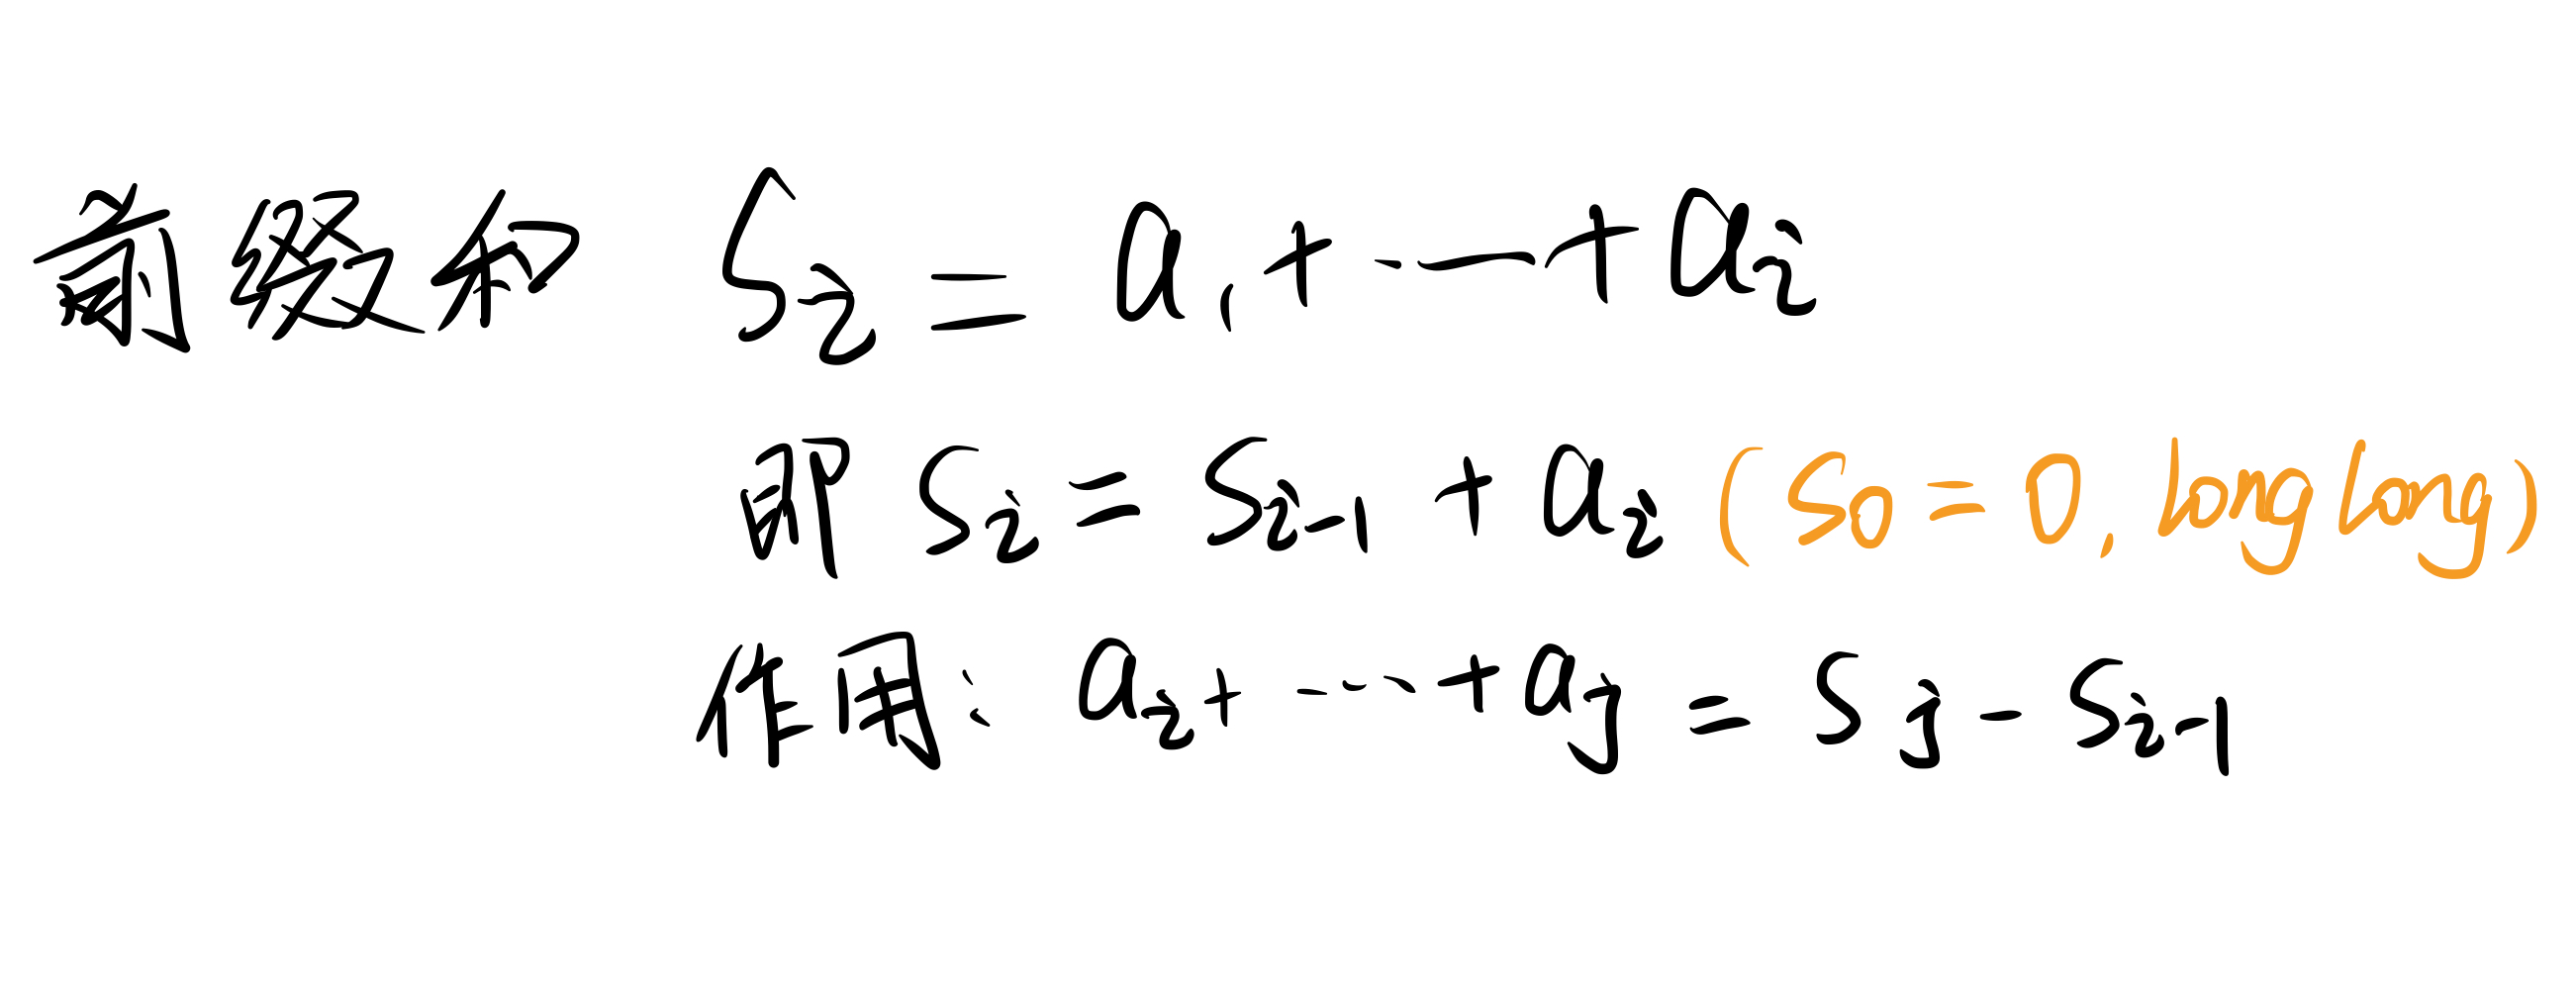 前缀和 Sᵢ = a₁ + ··· + aᵢ
即 Sᵢ = Sᵢ₋₁ + aᵢ (S₀ = 0, long long)
作用: aᵢ + ··· + aⱼ = Sⱼ - Sᵢ₋₁